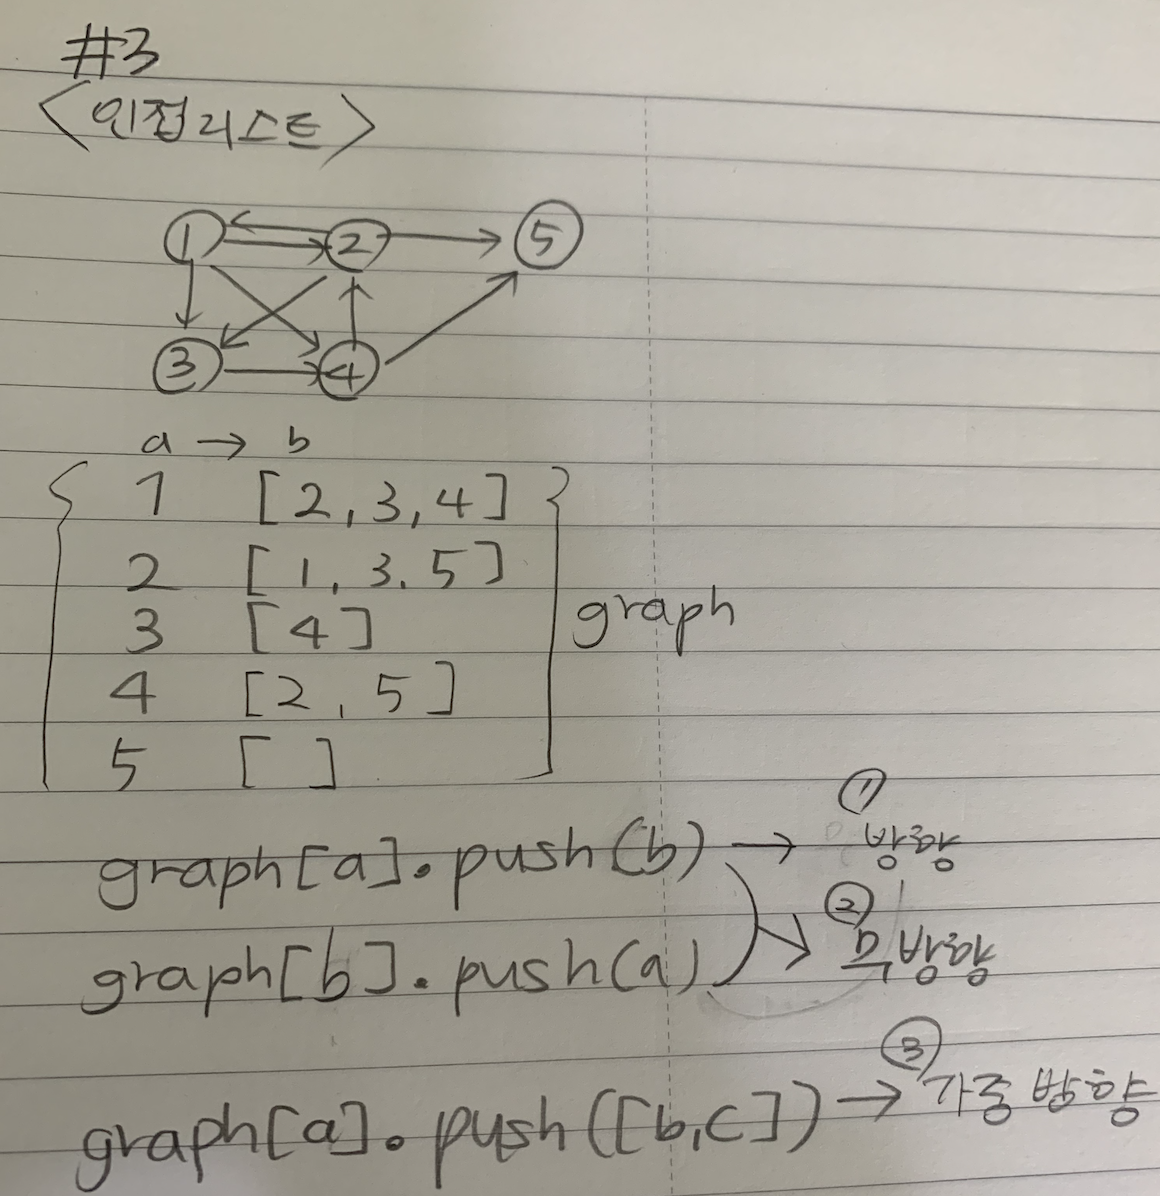 #3
<인접리스트>
1 2 5
3 4
a → b
1 [2,3,4]
2 [1,3,5]
3 [4]
4 [2,5]
5 [ ]
graph
graph[a].push(b) → ① 방향
graph[b].push(a) → ② 무방향
graph[a].push([b,c]) → ③ 가중 방향